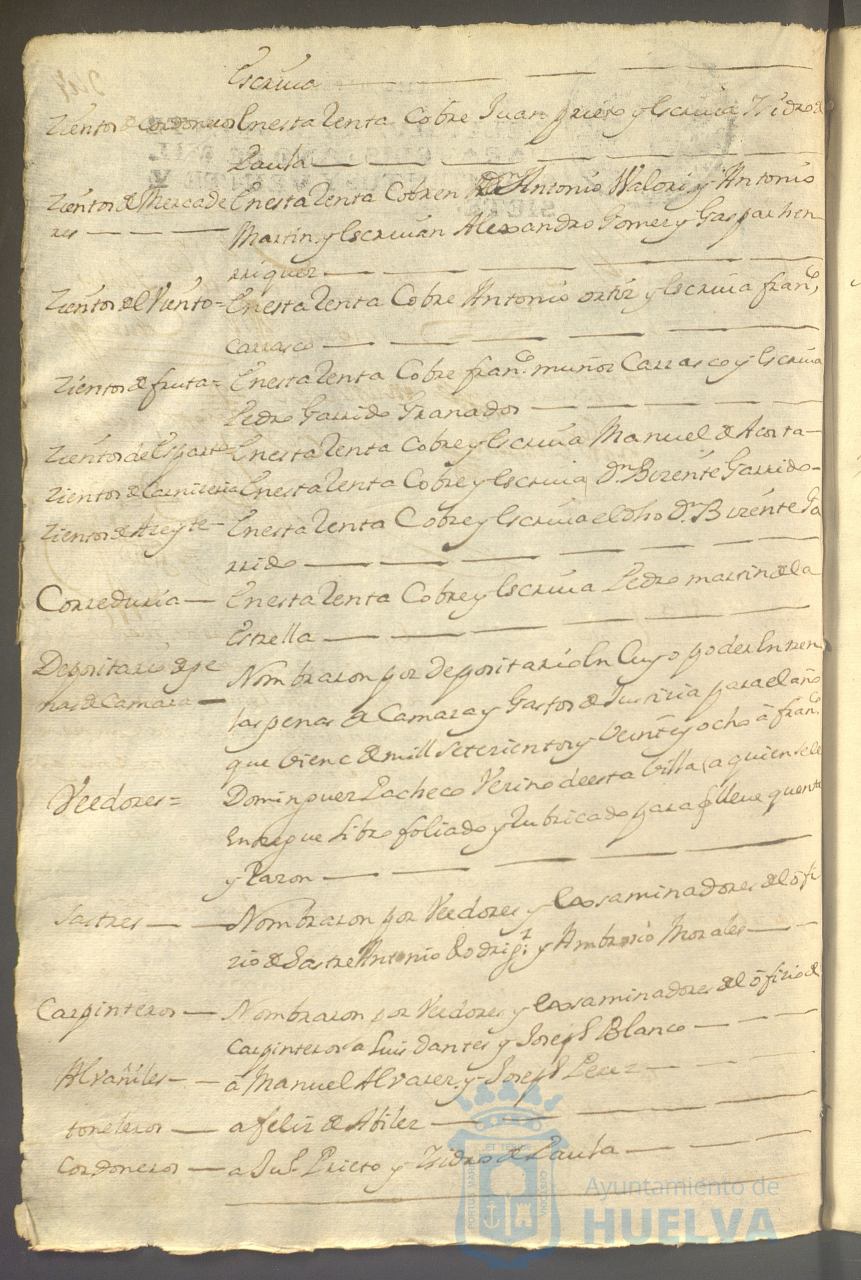 Escriua
Zientos de Cordoneros En esta Renta Cobre Juan prieto y Escriua Ysidro de
Paula
Zientos de Mercade En esta Renta Cobren Dn Antonio Walori y Antonio
res Martin y Escriuan Alexandro Gomez y Gaspar hen
rriquez
Zientos del Viento= En esta Renta Cobre Antonio ortiz y Escriua franco
Carrasco
Zientos de fruta= En esta Renta Cobre franco muñoz Carrasco y Escriua
Pedro Garrido Granados
Zientos de Esparto En esta Renta Cobre y Escriua Manuel de Acosta
Zientos de Carniseria En esta Renta Cobre y Escriua Dn Bizente Garrido
Zientos de Azeyte En esta Renta Cobre y Escriua el dho Dn Bizente Ga
rrido
Correduria En esta Renta Cobre y Escriua Pedro martin de la
Estrella
Depositario de pe Nombraron por Depositario En Cuyo poder Entren
nas de Camara las penas de Camara y Gastos de Justicia para el año
que biene de mill Setezientos y beinte y ocho â franco
Veedores= Dominguez Pacheco Vezino de esta Villa, a quien se le
Entregue Libro foliado y rubricado para q lleve quenta
y Razon
Sastres Nombraron por Veedores y Exsaminadores del ôfi
zio de Sastre Antonio Rodrigz y Ambrosio Morales
Carpinteros Nombraron por Veedores y Exsaminadores del ôfizio de
Carpinteros a Luis Dantes y Joseph Blanco
Alvañiles â Manuel Alvarez y Joseph Perez
toneleros a feliz de Abilez
Cordoneros a Jun Prieto y Ysidro de Paula
PORTUS MARIS ET TERRE CUSTODIA
Ayuntamiento de
HUELVA